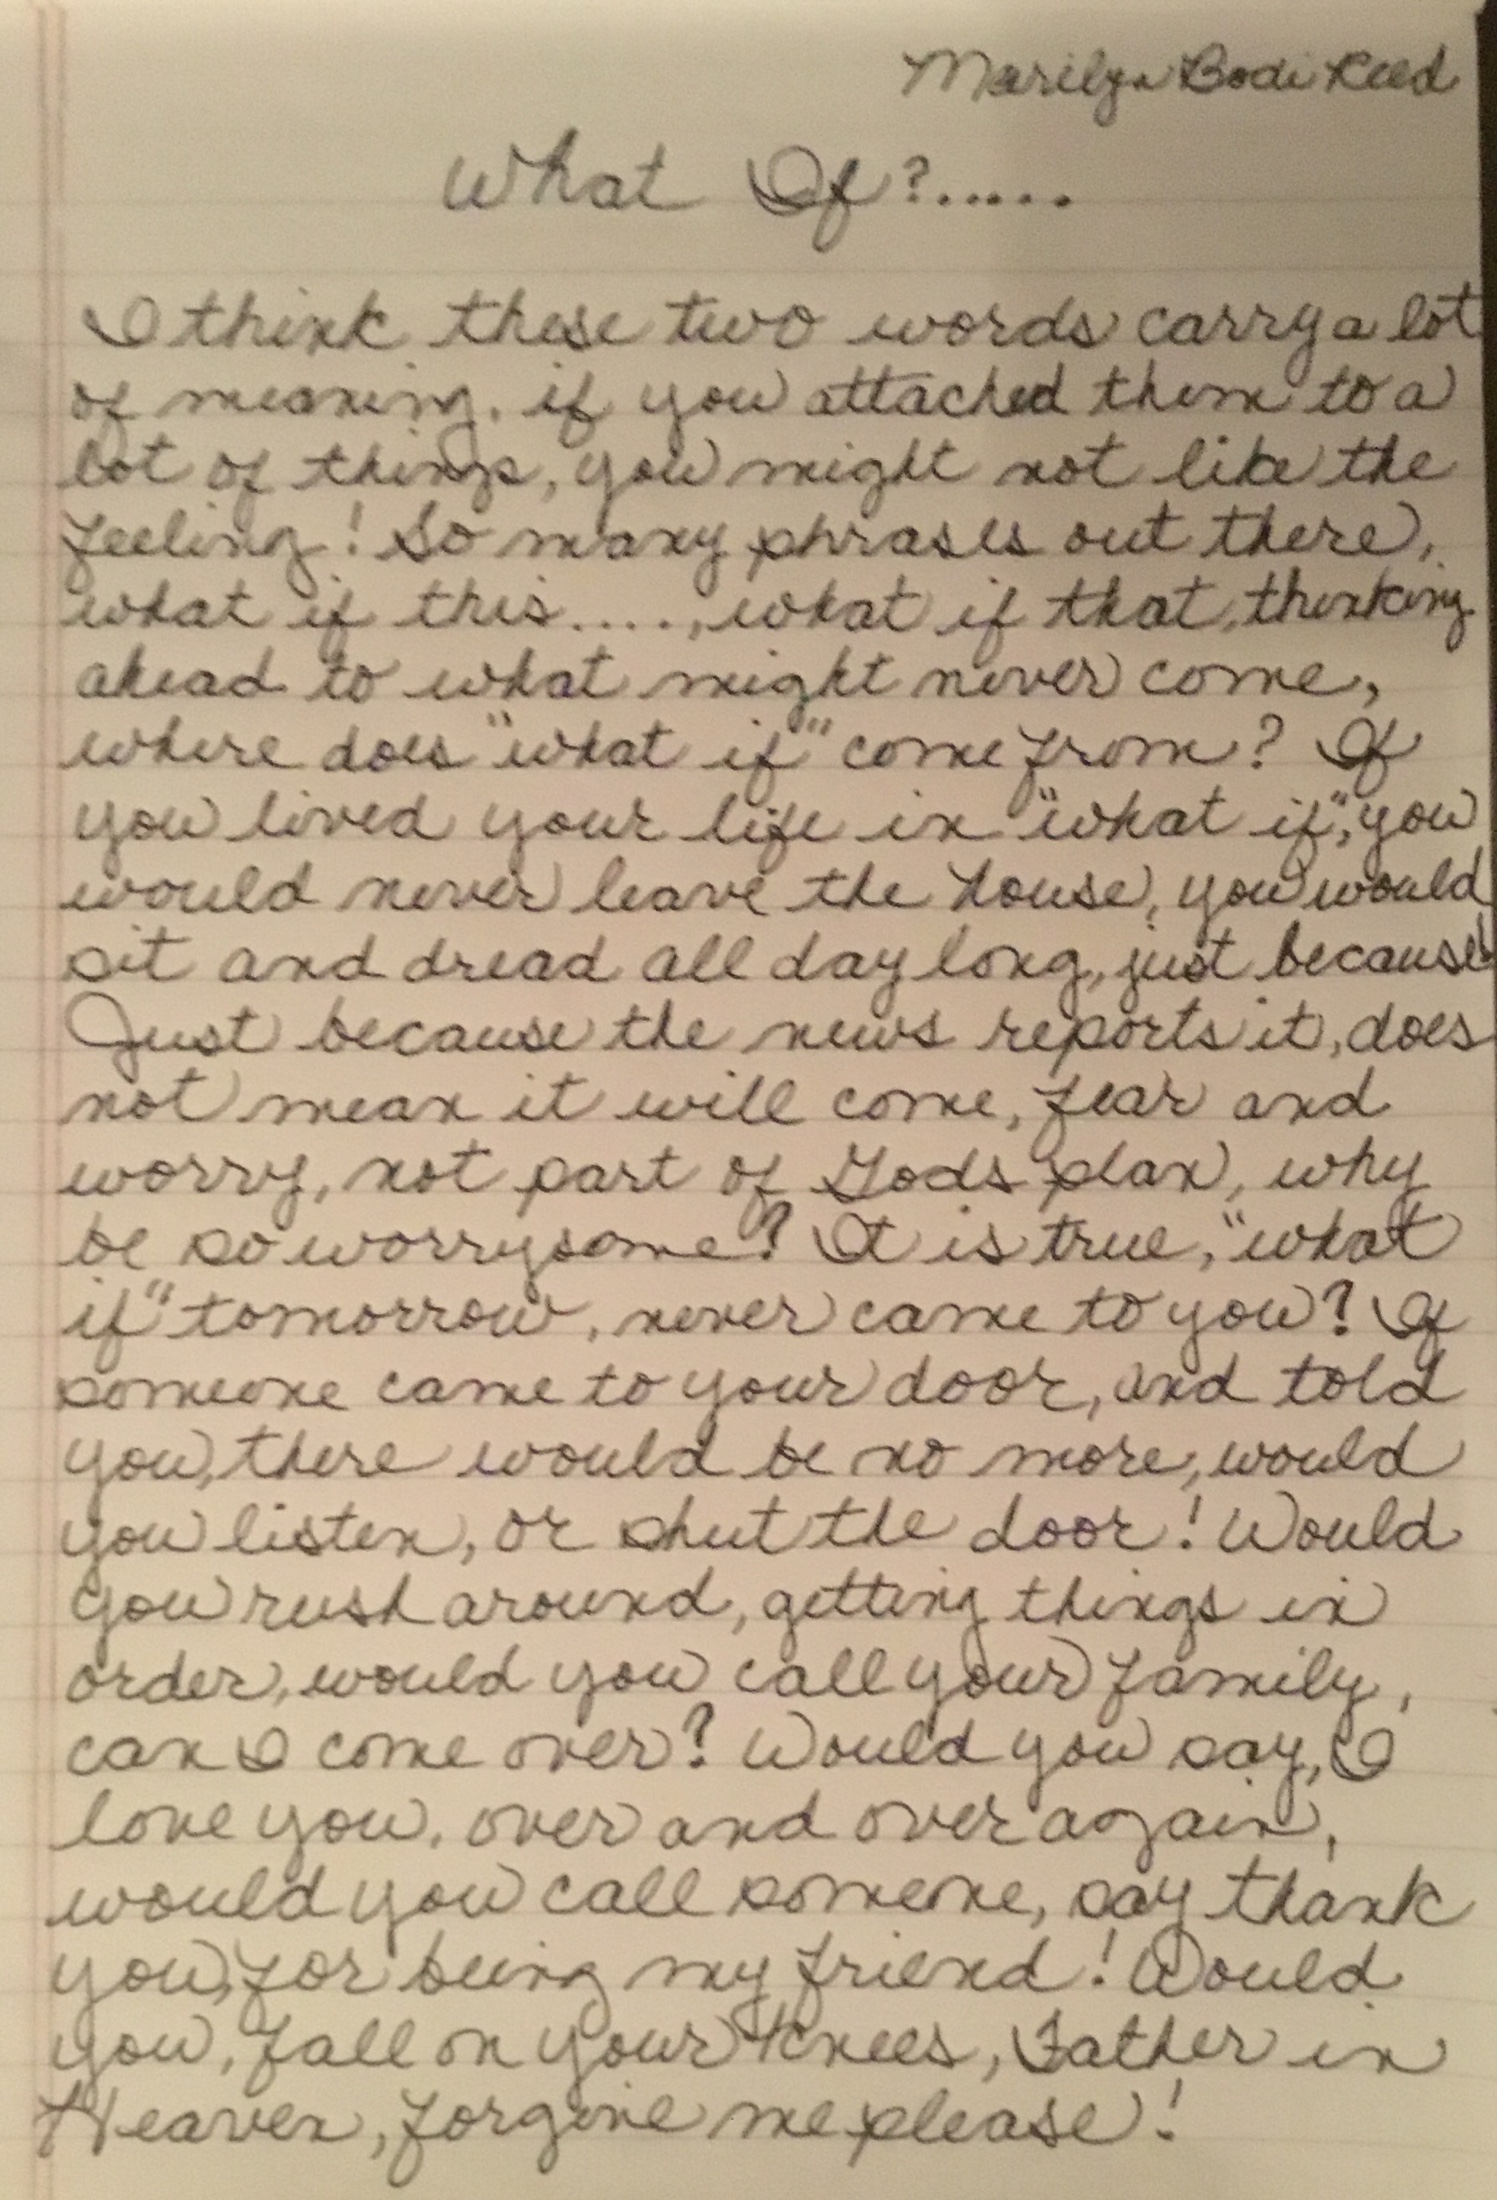 Marilyn Bodi Reed
What If?......
I think these two words carry a lot
of meaning. if you attached them to a
lot of things, you might not like the
feeling! So many phrases out there,
what if this...., what if that, thinking
ahead to what might never come,
where does "what if" come from? If
you lived your life in "what if", you
would never leave the house, you would
sit and dread all day long, just because!
Just because the news reports it, does
not mean it will come, fear and
worry, not part of Gods plan, why
be so worrysome? It is true, "what
if" tomorrow, never came to you? If
someone came to your door, and told
you, there would be no more, would
you listen, or shut the door! Would
you rush around, getting things in
order, would you call your family,
can I come over? Would you say, I
love you, over and over again,
would you call someone, say thank
you, for being my friend! Would
you, fall on your knees, Father in
Heaven, forgive me please!